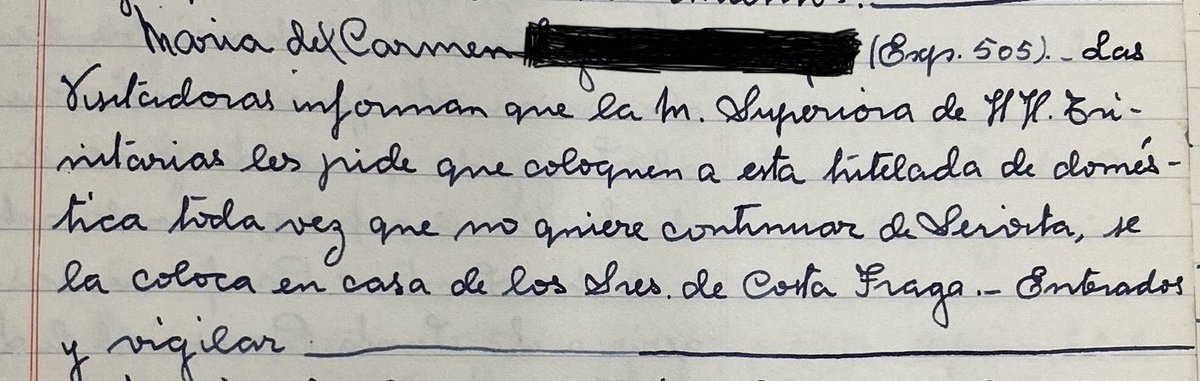 Maria del Carmen (Exp. 505).- Las
Visitadoras informan que la M. Superiora de HH. Tri-
nitarias les pide que coloquen a esta tutelada de domés-
tica toda vez que no quiere continuar de Seriota, se
la coloca en casa de los Sres. de Costa Fraga.- Enterados
y vigilar